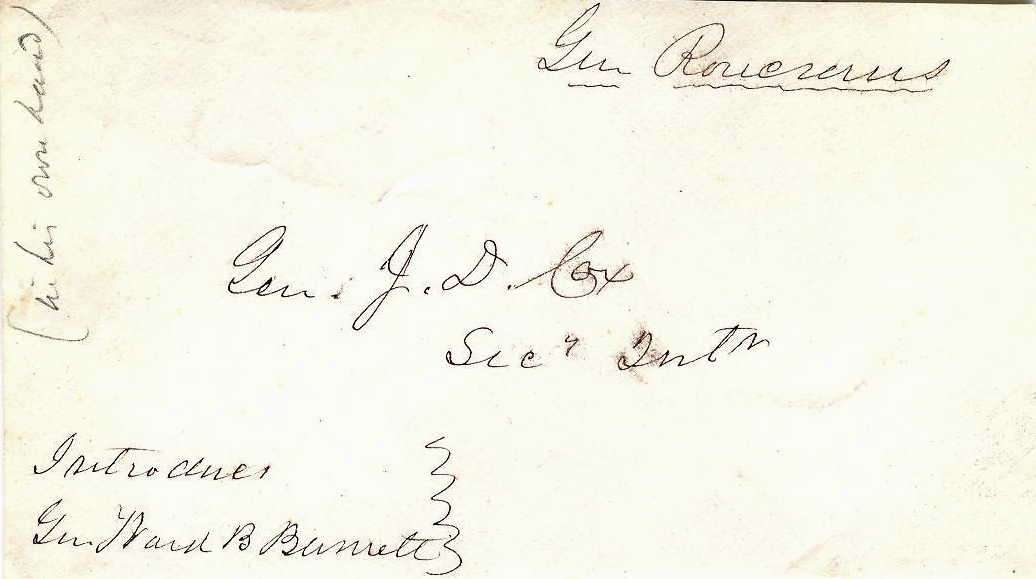 Gen Rosecrans
(in his own hand)
Gen. J. D. Cox
Secy Intr
Introduces
Gen Ward B Burnett